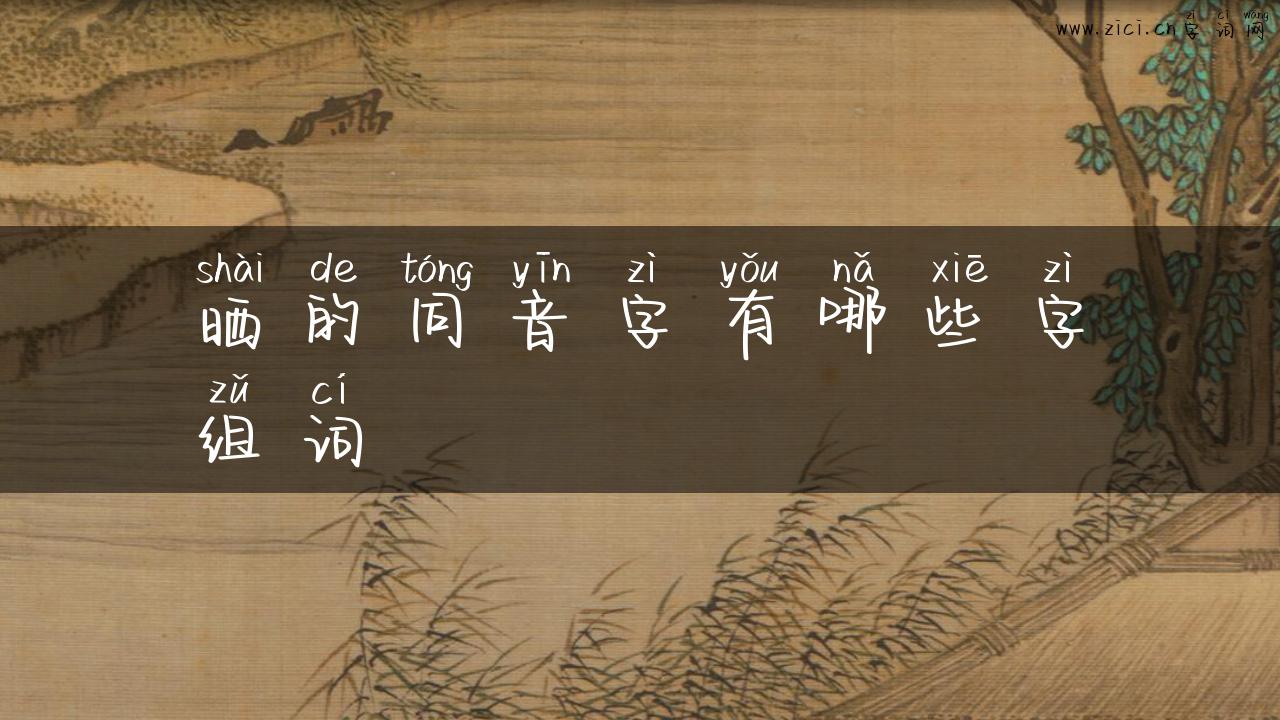 zì cí wǎng
www.zici.cn字词网
shài de tóng yīn zì yǒu nǎ xiē zì
晒的同音字有哪些字
zǔ cí
组词